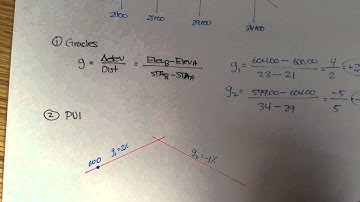 21+00 23+00 29+00 34+00
① Grades
g = Δelev / Dist = Elev B - Elev A / STA B - STA A
g₁ = 604.00 - 600.00 / 23 - 21 = 4 / 2
g₂ = 599.00 - 604.00 / 34 - 29 = -5 / 5
② PVI
600
g₁=2%
g₂=-1%